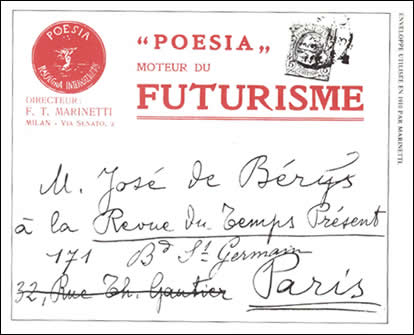 POESIA
RASSEGNA INTERNAZIONALE
"POESIA„
MOTEUR DU
FUTURISME
DIRECTEUR:
F. T. MARINETTI
MILAN - VIA SENATO, 2
M. José de Bérys
à la Revue du Temps Présent
171 Bd St. Germain
32, Rue Th. Gautier Paris
ENVELOPPE UTILISÉE EN 1910 PAR MARINETTI.